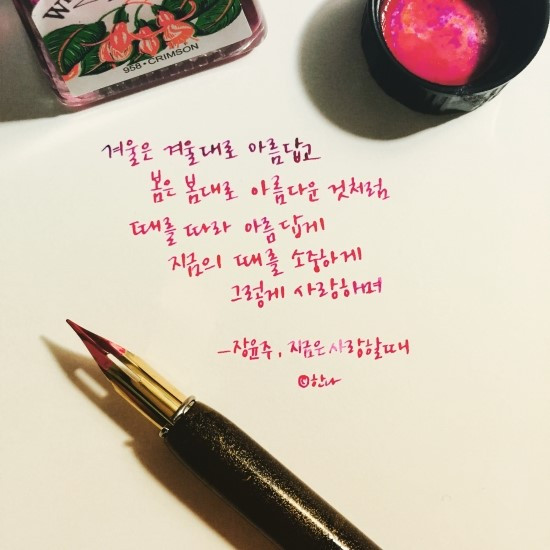 958•CRIMSON
겨울은 겨울대로 아름답고
봄은 봄대로 아름다운 것처럼
때를 따라 아름답게
지금의 때를 소중하게
그렇게 사랑하며
-장윤주, 지금은 사랑할때
©한나